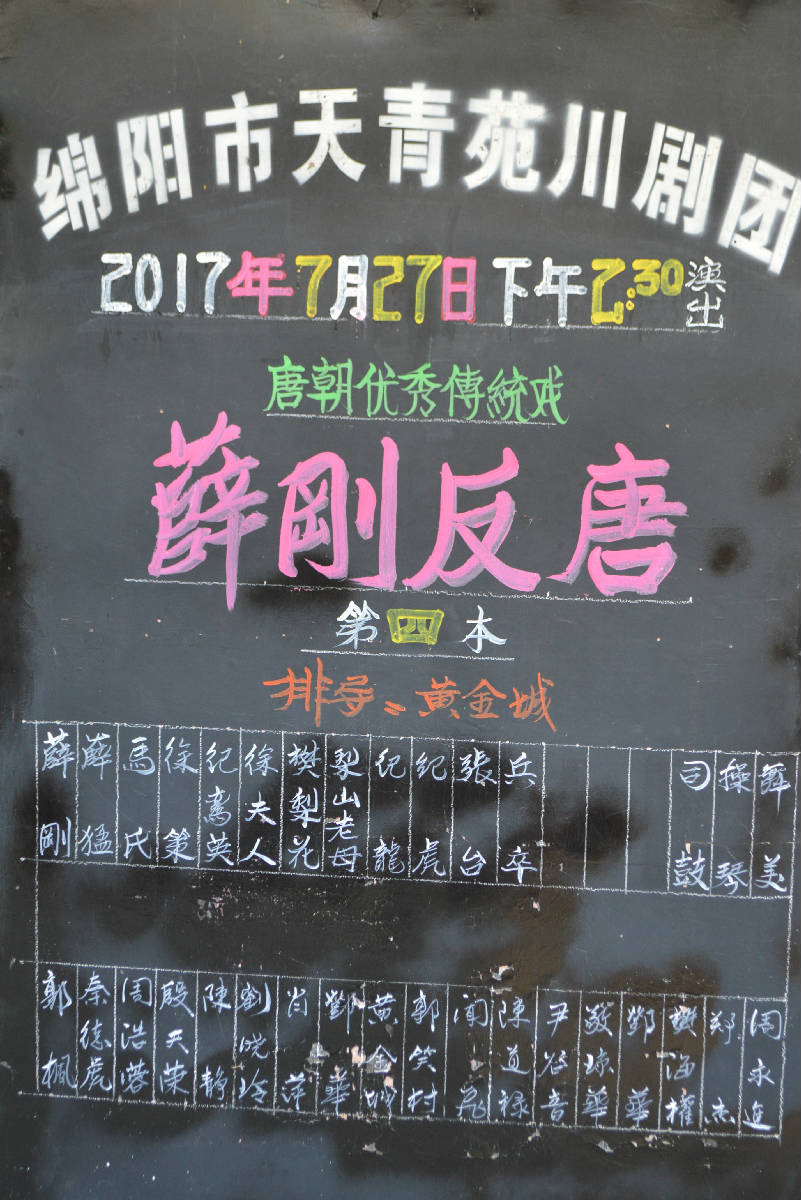 绵阳市天青苑川剧团
2017年7月27日下午2:30演出
唐朝优秀傳統戏
薛剛反唐
第四本
排导:黄金城
薛剛 薛猛 馬氏 徐策 纪鸾英 徐夫人 樊梨花 梨山老母 纪龍 纪虎 張台 兵卒 司鼓 操琴 舞美
郭楓 秦德虎 周浩蓉 殷天荣 陳静 劉晓玲 肖萍 鄧華 黄金城 郭笑村 陳道禄 鄧華 樊海權 郑杰 周永连